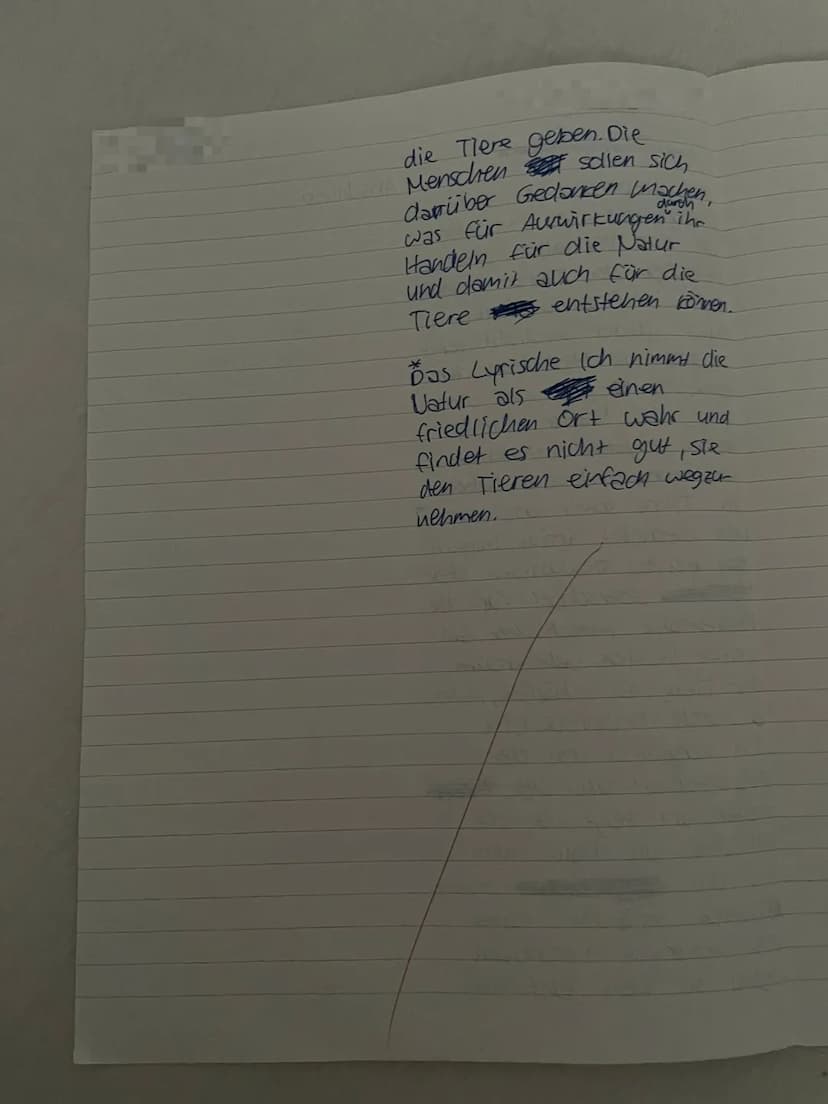 die Tiere geben. Die
Menschen sollen sich
darüber Gedanken machen,
was für Auswirkungen durch ihr
Handeln für die Natur
und damit auch für die
Tiere entstehen können.
*Das Lyrische Ich nimmt die
Natur als einen
friedlichen Ort wahr und
findet es nicht gut, sie
den Tieren einfach wegzu-
nehmen.